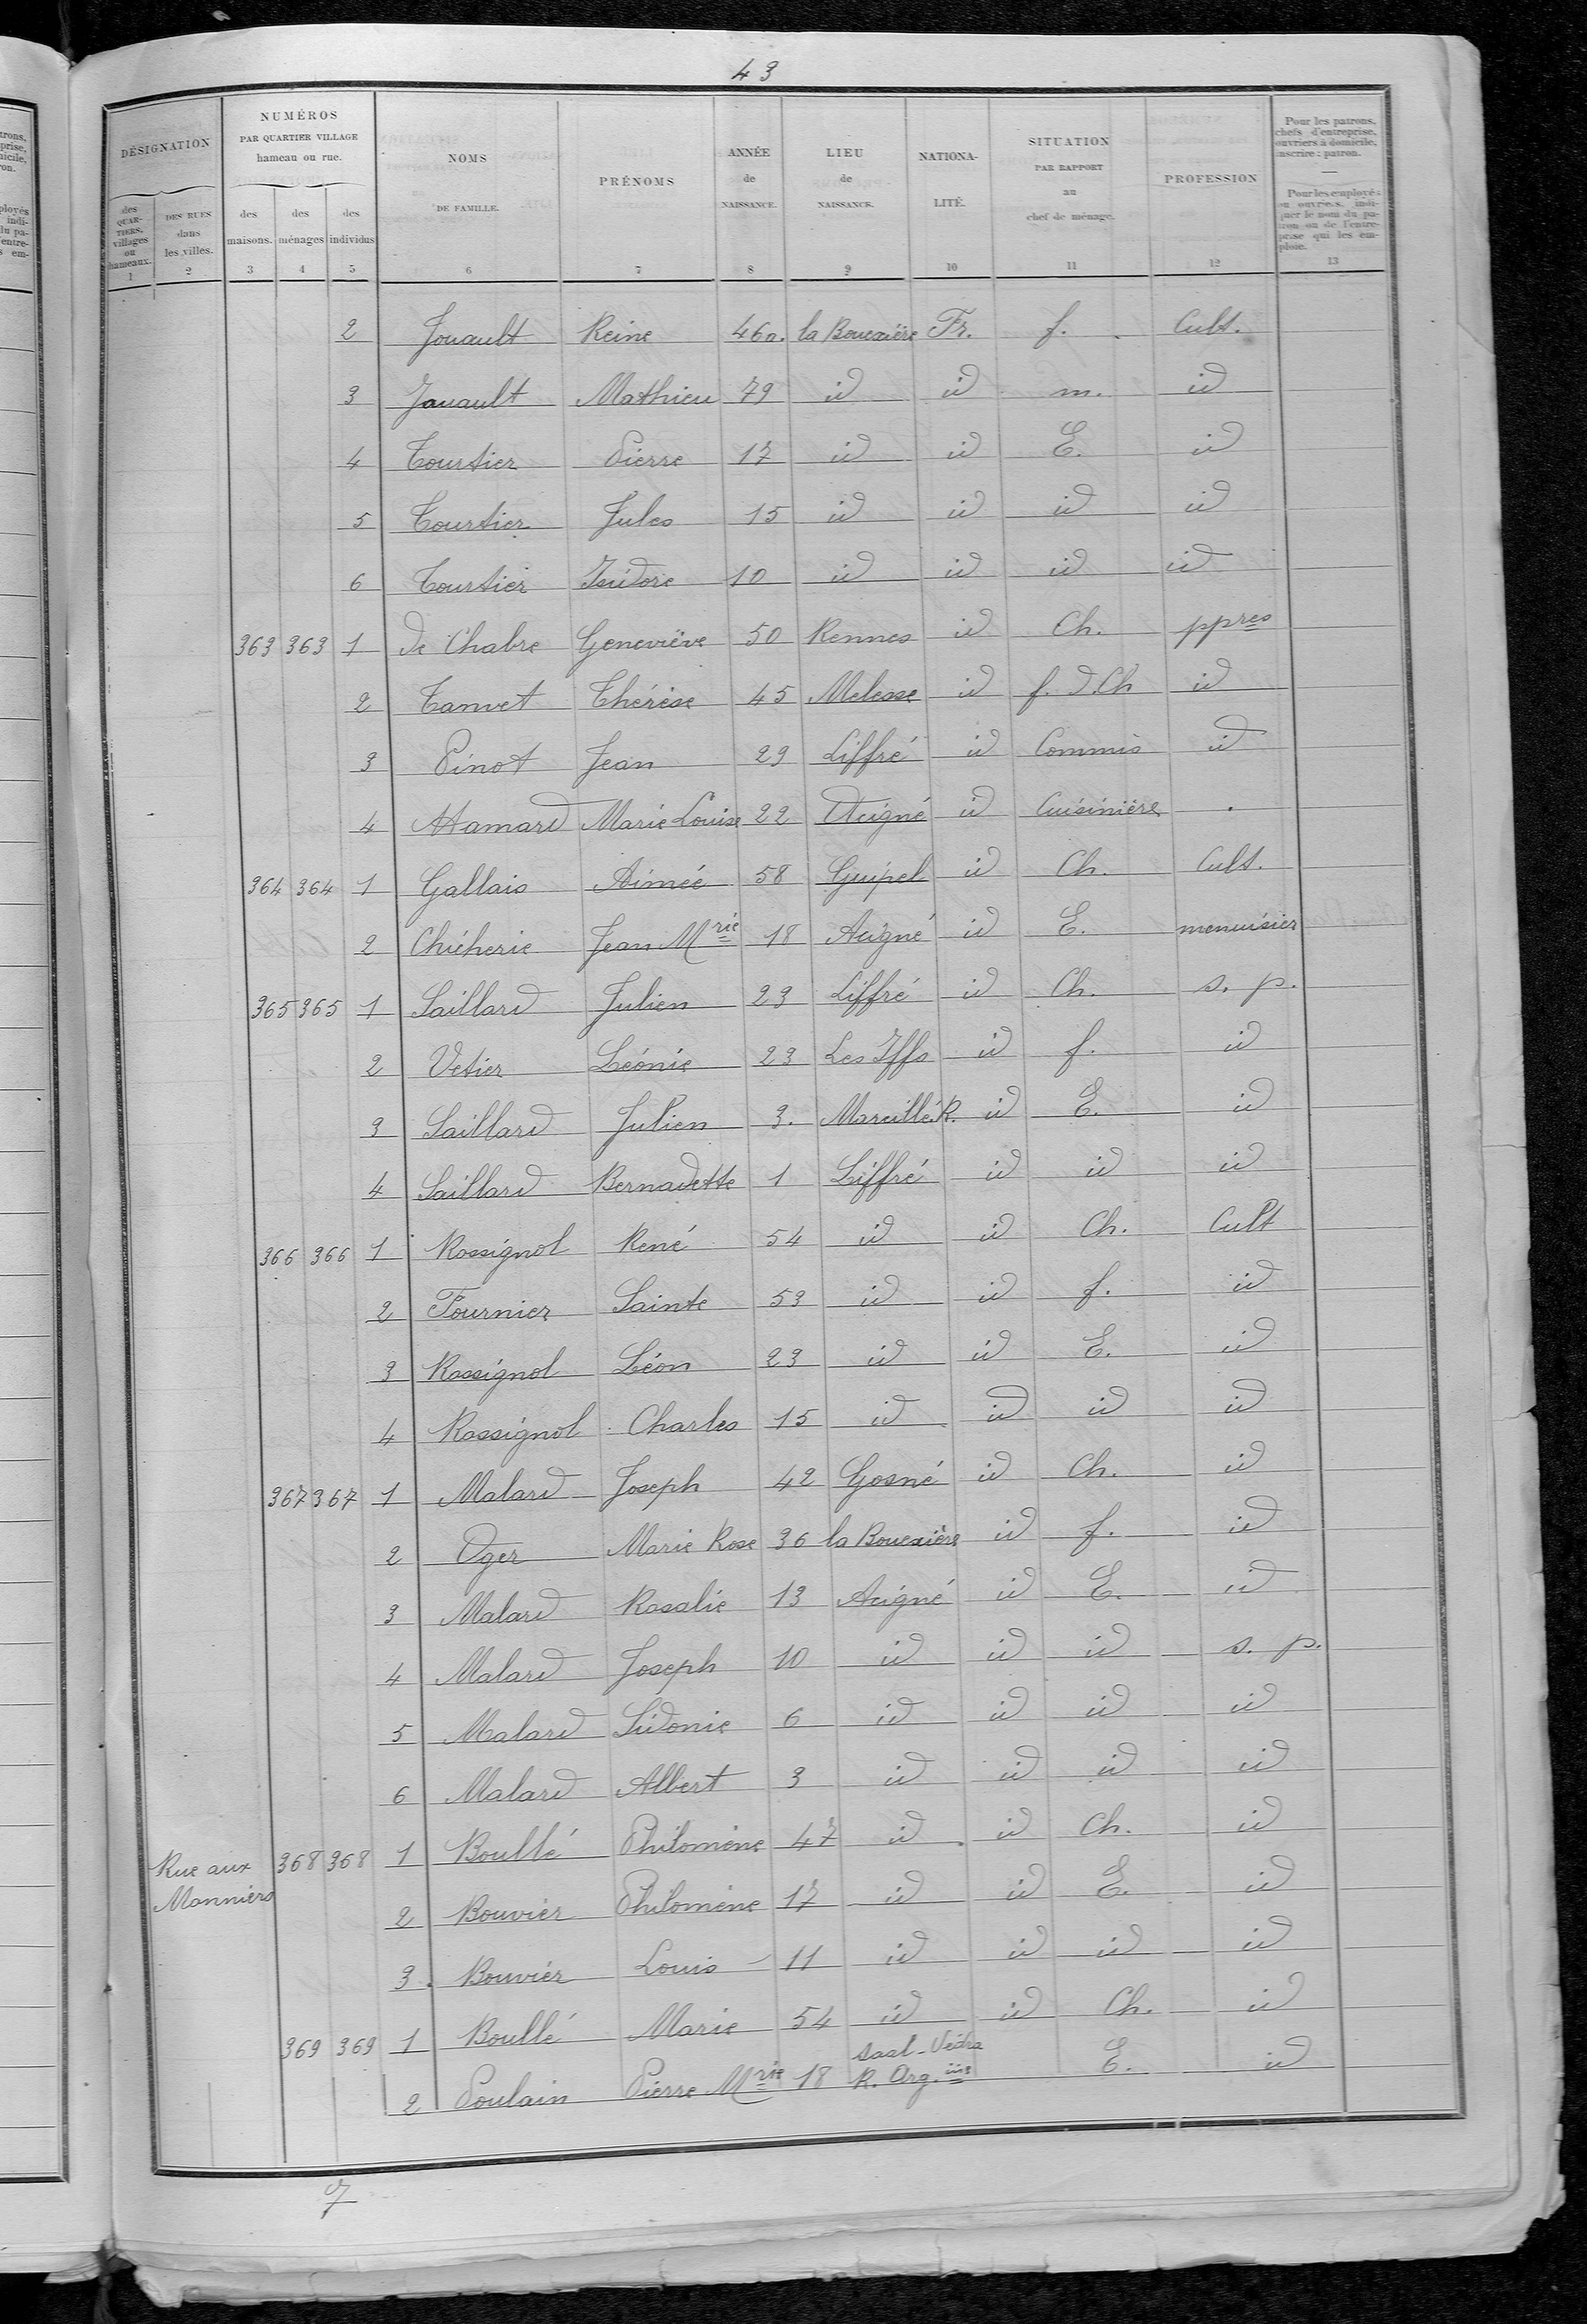 43
DÉSIGNATION
NUMÉROS
PAR QUARTIER VILLAGE
hameau ou rue.
NOMS
DE FAMILLE.
PRÉNOMS
ANNÉE
de
NAISSANCE.
LIEU
de
NAISSANCE.
NATIONA-
LITÉ.
SITUATION
PAR RAPPORT
au
chef de ménage.
PROFESSION
Pour les patrons,
chefs d'entreprise,
ouvriers à domicile,
inscrire : patron.
Pour les employés
ou ouvriers, indi-
quer le nom du pa-
tron ou de l'entre-
prise qui les em-
ploie.
des
QUAR-
TIERS,
villages
ou
hameaux.
DES RUES
dans
les villes.
des
maisons.
des
ménages
des
individus
1 2 3 4 5 6 7 8 9 10 11 12 13
2 Jouault Reine 46 a. la Bouexière Fr. f. Cult.
3 Jouault Mathieu 79 id id m. id
4 Tourtier Pierre 17 id id E. id
5 Tourtier Jules 15 id id id id
6 Tourtier Isidore 10 id id id id
363 363 1 de Chabre Geneviève 50 Rennes id Ch. ppres
2 Tanvet Thérèse 45 Melesse id f. d. Ch id
3 Pinot Jean 29 Liffré id Commis id
4 Hamard Marie Louise 22 Acigné id Cuisinière .
364 364 1 Gallais Aimée 58 Guipel id Ch. Cult.
2 Chiéherie Jean Mrie 18 Acigné id E. menuisier
365 365 1 Saillard Julien 23 Liffré id Ch. s. p.
2 Vetier Léonie 23 Les Iffs id f. id
3 Saillard Julien 3. Marcillé R. id E. id
4 Saillard Bernadette 1 Liffré id id id
366 366 1 Rossignol René 54 id id Ch. Cult
2 Fournier Sainte 53 id id f. id
3 Rossignol Léon 23 id id E. id
4 Rossignol Charles 15 id id id id
367 367 1 Malard Joseph 42 Gosné id Ch. id
2 Oger Marie Rose 36 la Bouexière id f. id
3 Malard Rosalie 13 Acigné id E. id
4 Malard Joseph 10 id id id s. p.
5 Malard Sidonie 6 id id id id
6 Malard Albert 3 id id id id
Rue aux
Monniers
368 368 1 Boullé Philomène 47 id id Ch. id
2 Bouvier Philomène 17 id id E. id
3 Bouvier Louis 11 id id id id
369 369 1 Boullé Marie 54 id id Ch. id
2 Poulain Pierre Mrie 18 R. Arg. E. id
7